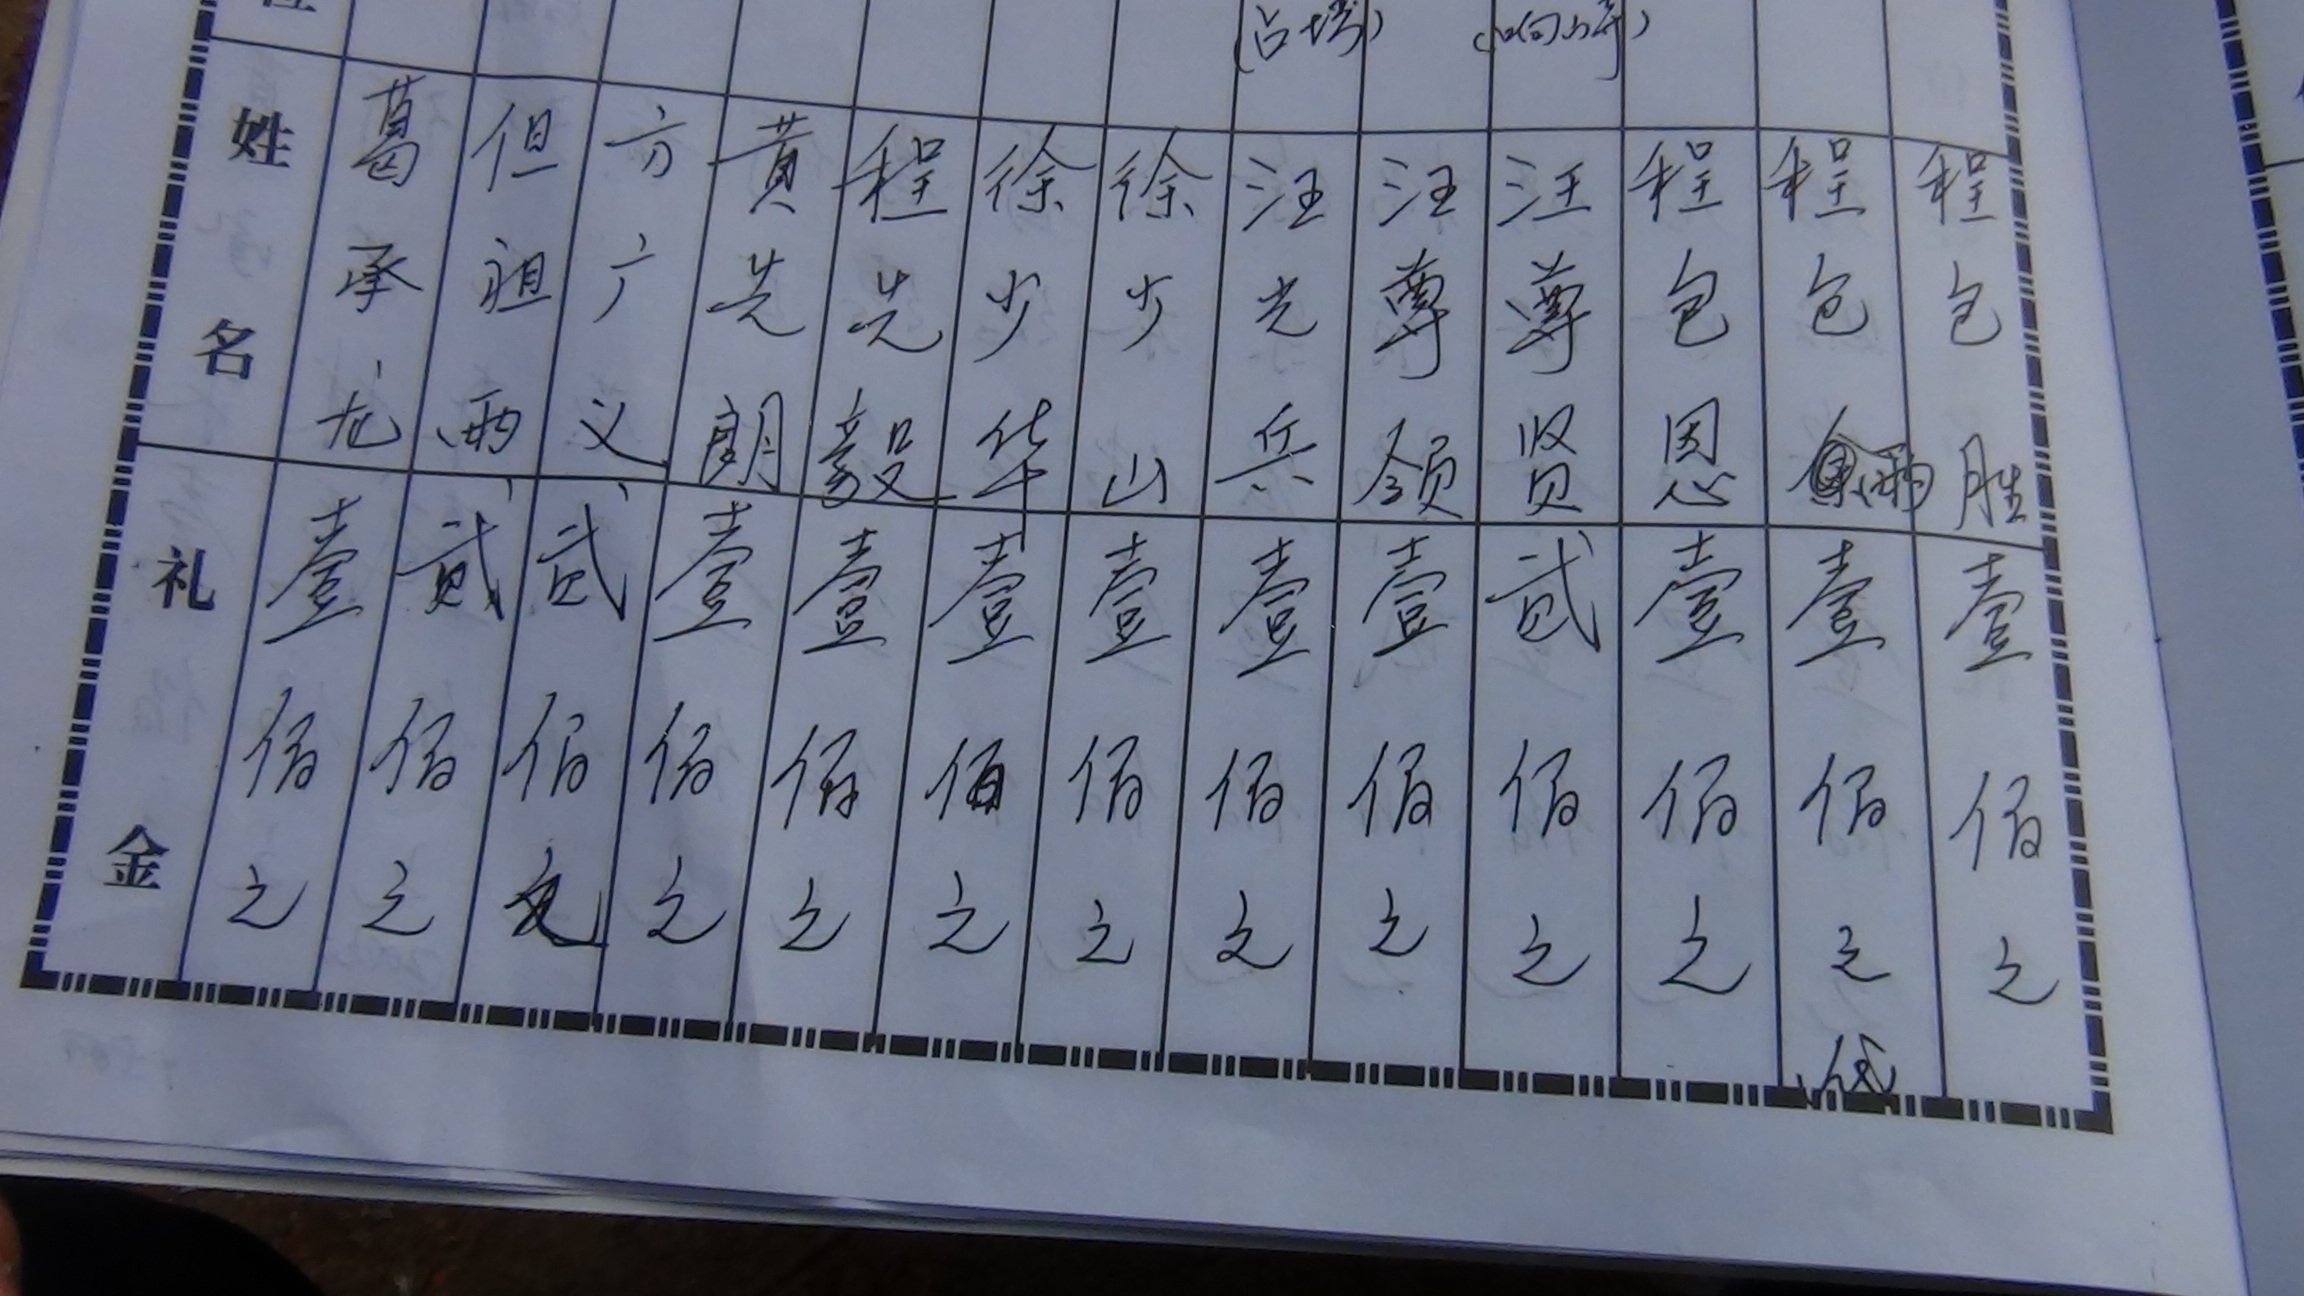 姓名 礼金
葛承龙 壹佰元
但祖雨 贰佰元
方广义 贰佰元
黄先朗 壹佰元
程先毅 壹佰元
徐少华 壹佰元
徐少山 壹佰元
汪光兵 壹佰元
汪尊领 壹佰元
汪尊贤 贰佰元
程包恩 壹佰元
程包雨 壹佰元
程包胜 壹佰元